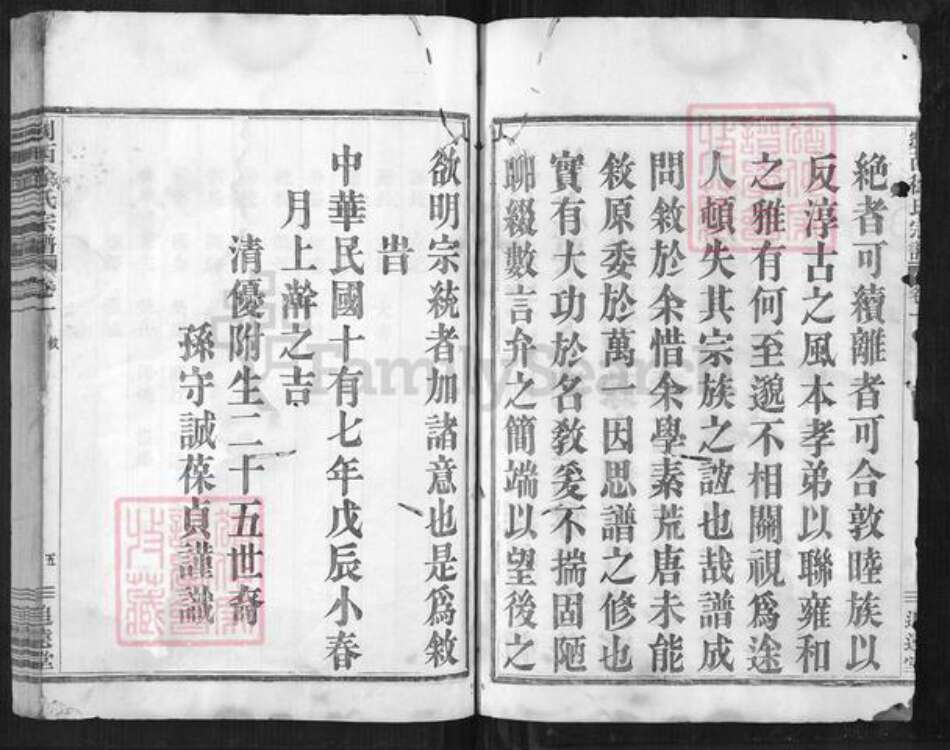 絶者可續離者可合敦睦族以
反淳古之風本孝弟以聯雍和
之雅有何至邈不相關視爲途
人頓失其宗族之誼也哉譜成
問敘於余惜余學素荒唐未能
敘原委於萬一因思譜之修也
實有大功於名教爰不揣固陋
聊綴數言弁之簡端以望後之
欲明宗統者加諸意也是爲敘
旹
中華民國十有七年戊辰小春
月上澣之吉
清優附生二十五世裔
孫守誠葆貞謹識
氏宗譜
五
追遠堂
FamilySearch